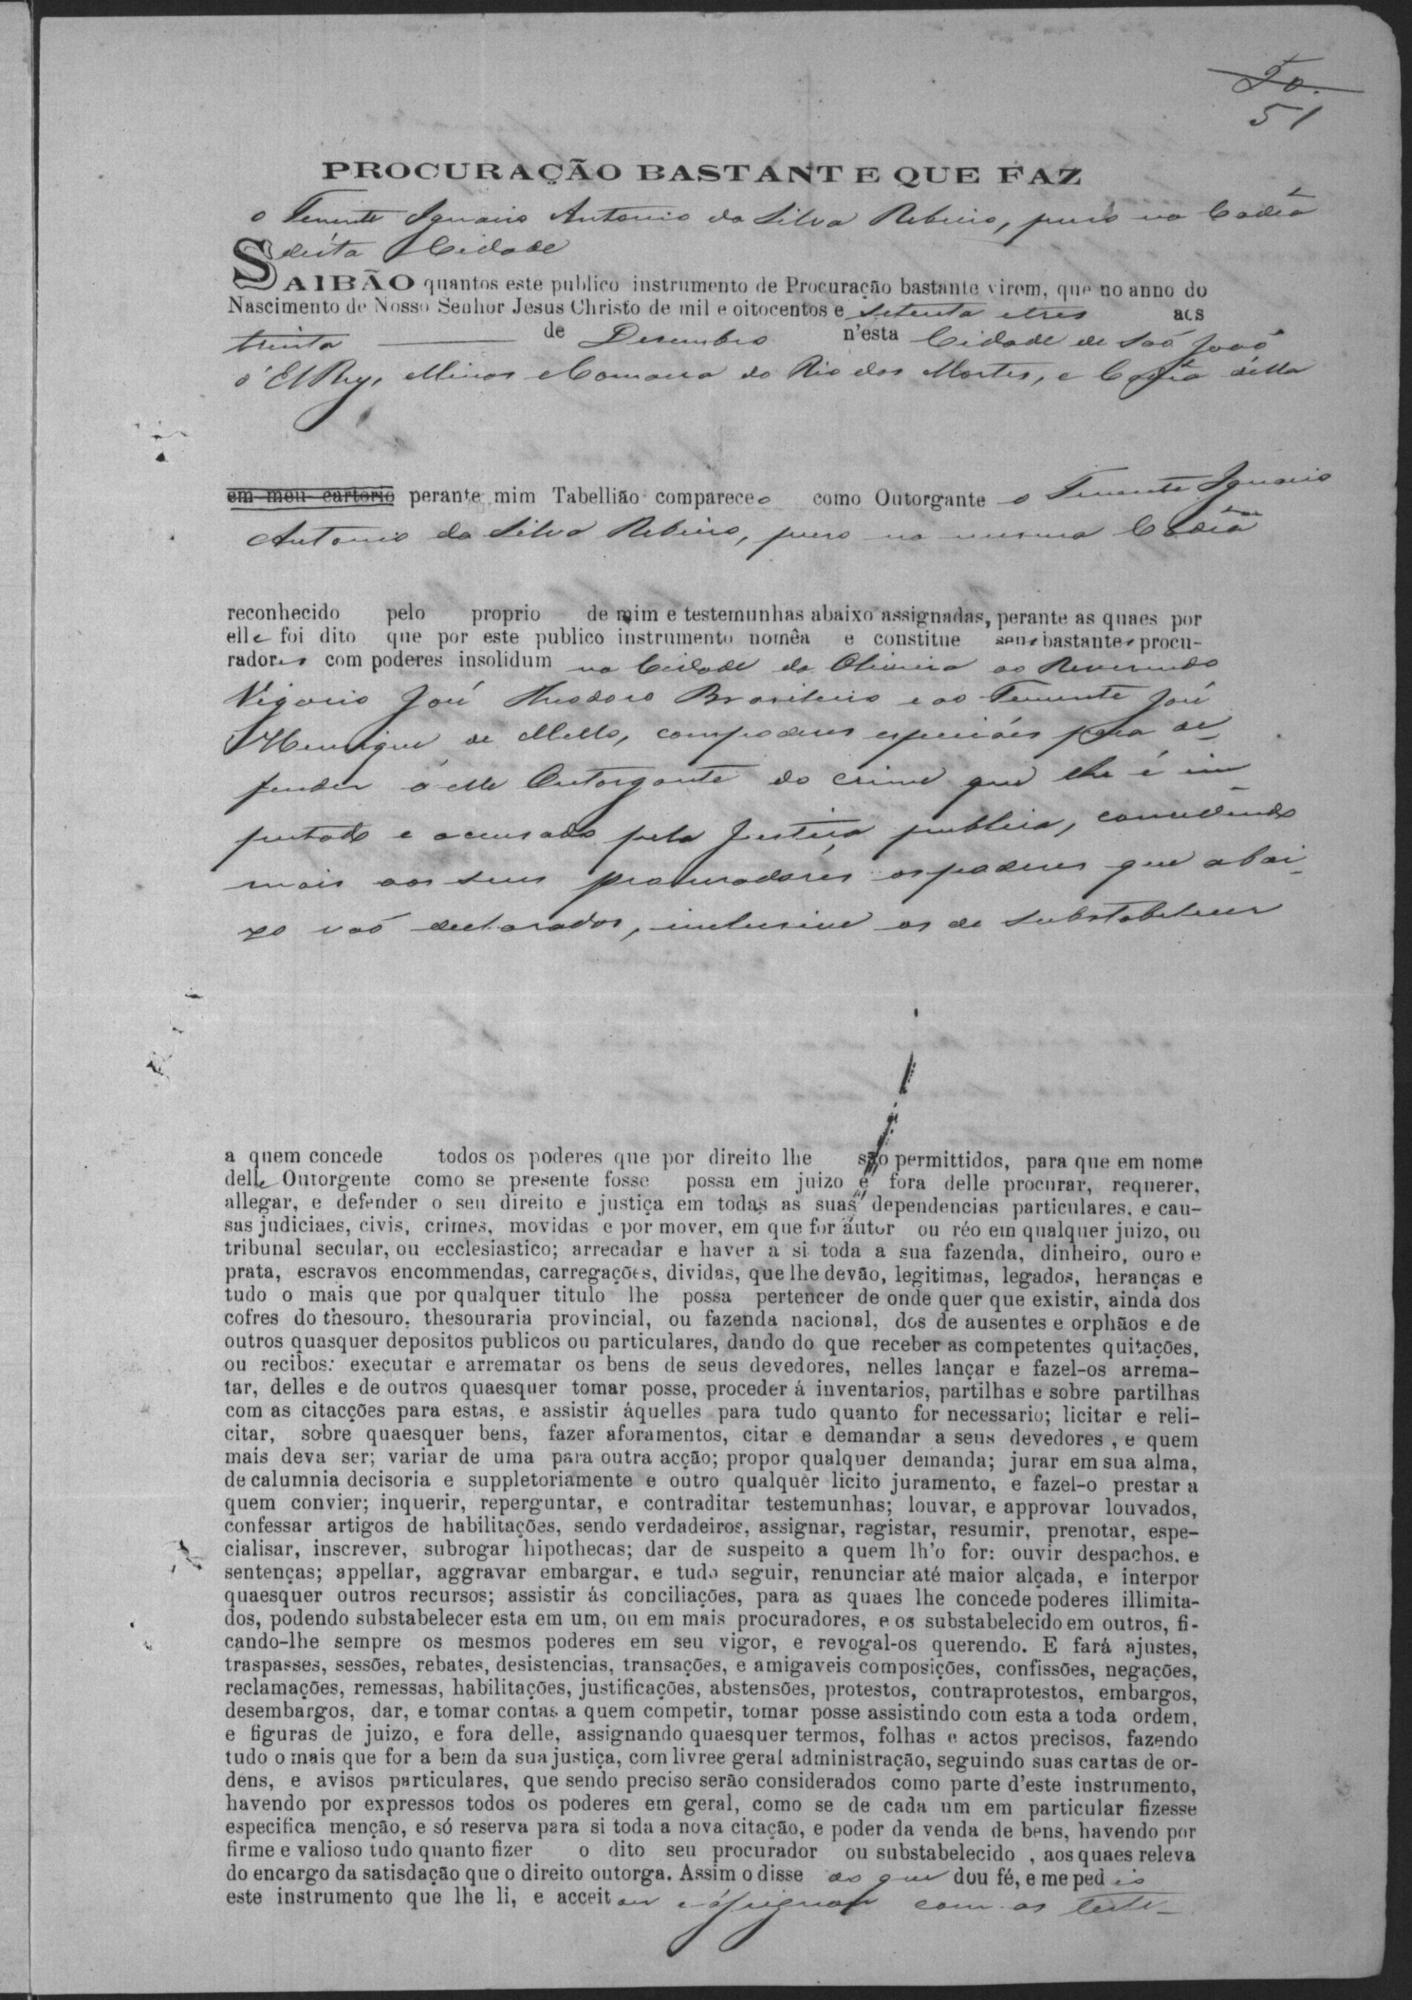 50.
51
PROCURAÇÃO BASTANTE QUE FAZ
o Tenente Ignacio Antonio da Silva Ribeiro, preso na Cadêa
désta Cidade
SAIBÃO quantos este publico instrumento de Procuração bastante virem, que no anno do
Nascimento de Nosso Senhor Jesus Christo de mil e oitocentos e setenta e tres aos
trinta de Desembro n'esta Cidade de São João
d'El Rey, Minas e Comarca do Rio das Mortes, e Cadêa della
em meu cartorio perante mim Tabellião compareceo como Outorgante o Tenente Ignacio
Antonio da Silva Ribeiro, preso na mesma Cadêa
reconhecido pelo proprio de mim e testemunhas abaixo assignadas, perante as quaes por
elle foi dito que por este publico instrumento nomêa e constitue seus bastantes procu-
radores com poderes insolidum na Cidade da Oliveira ao Reverendo
Vigario José Theodoro Brasileiro e ao Tenente José
Henrique de Mello, com poderes especiáes para de-
fender a elle Outorgante do crime que lhe é im-
putado e accusado pela Justiça publica, concedendo
mais aos seus procuradores os poderes que abai-
xo vão declarados, inclusive os de substabelecer
a quem concede todos os poderes que por direito lhe são permittidos, para que em nome
delle Outorgente como se presente fosse possa em juizo e fora delle procurar, requerer,
allegar, e defender o seu direito e justiça em todas as suas dependencias particulares, e cau-
sas judiciaes, civis, crimes, movidas e por mover, em que for autor ou réo em qualquer juizo, ou
tribunal secular, ou ecclesiastico; arrecadar e haver a si toda a sua fazenda, dinheiro, ouro e
prata, escravos encommendas, carregações, dividas, que lhe devão, legitimas, legados, heranças e
tudo o mais que por qualquer titulo lhe possa pertencer de onde quer que existir, ainda dos
cofres do thesouro, thesouraria provincial, ou fazenda nacional, dos de ausentes e orphãos e de
outros quasquer depositos publicos ou particulares, dando do que receber as competentes quitações,
ou recibos: executar e arrematar os bens de seus devedores, nelles lançar e fazel-os arrema-
tar, delles e de outros quaesquer tomar posse, proceder á inventarios, partilhas e sobre partilhas
com as citacções para estas, e assistir áquelles para tudo quanto for necessario; licitar e reli-
citar, sobre quaesquer bens, fazer aforamentos, citar e demandar a seus devedores , e quem
mais deva ser; variar de uma para outra acção; propor qualquer demanda; jurar em sua alma,
de calumnia decisoria e suppletoriamente e outro qualquér licito juramento, e fazel-o prestar a
quem convier; inquerir, reperguntar, e contraditar testemunhas; louvar, e approvar louvados,
confessar artigos de habilitações, sendo verdadeiros, assignar, registar, resumir, prenotar, espe-
cialisar, inscrever, subrogar hipothecas; dar de suspeito a quem lh'o for: ouvir despachos, e
sentenças; appellar, aggravar embargar, e tudo seguir, renunciar até maior alçada, e interpor
quaesquer outros recursos; assistir ás conciliações, para as quaes lhe concede poderes illimita-
dos, podendo substabelecer esta em um, ou em mais procuradores, e os substabelecido em outros, fi-
cando-lhe sempre os mesmos poderes em seu vigor, e revogal-os querendo. E fará ajustes,
traspasses, sessões, rebates, desistencias, transações, e amigaveis composições, confissões, negações,
reclamações, remessas, habilitações, justificações, abstensões, protestos, contraprotestos, embargos,
desembargos, dar, e tomar contas a quem competir, tomar posse assistindo com esta a toda ordem,
e figuras de juizo, e fora delle, assignando quaesquer termos, folhas e actos precisos, fazendo
tudo o mais que for a bem da sua justiça, com livre e geral administração, seguindo suas cartas de or-
dens, e avisos particulares, que sendo preciso serão considerados como parte d'este instrumento,
havendo por expressos todos os poderes em geral, como se de cada um em particular fizesse
especifica menção, e só reserva para si toda a nova citação, e poder da venda de bens, havendo por
firme e valioso tudo quanto fizer o dito seu procurador ou substabelecido , aos quaes releva
do encargo da satisdação que o direito outorga. Assim o disse do que dou fé, e me pedio
este instrumento que lhe li, e acceitou e assignou com as teste-